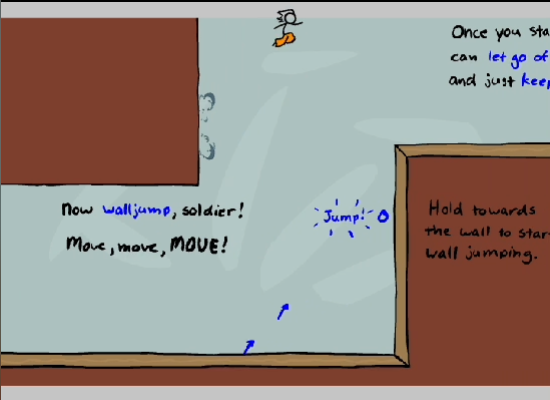 Once you sta
can let go of
and just keep
Now walljump, soldier!
Move, move, MOVE!
Jump!
Hold towards
the wall to star
wall jumping.